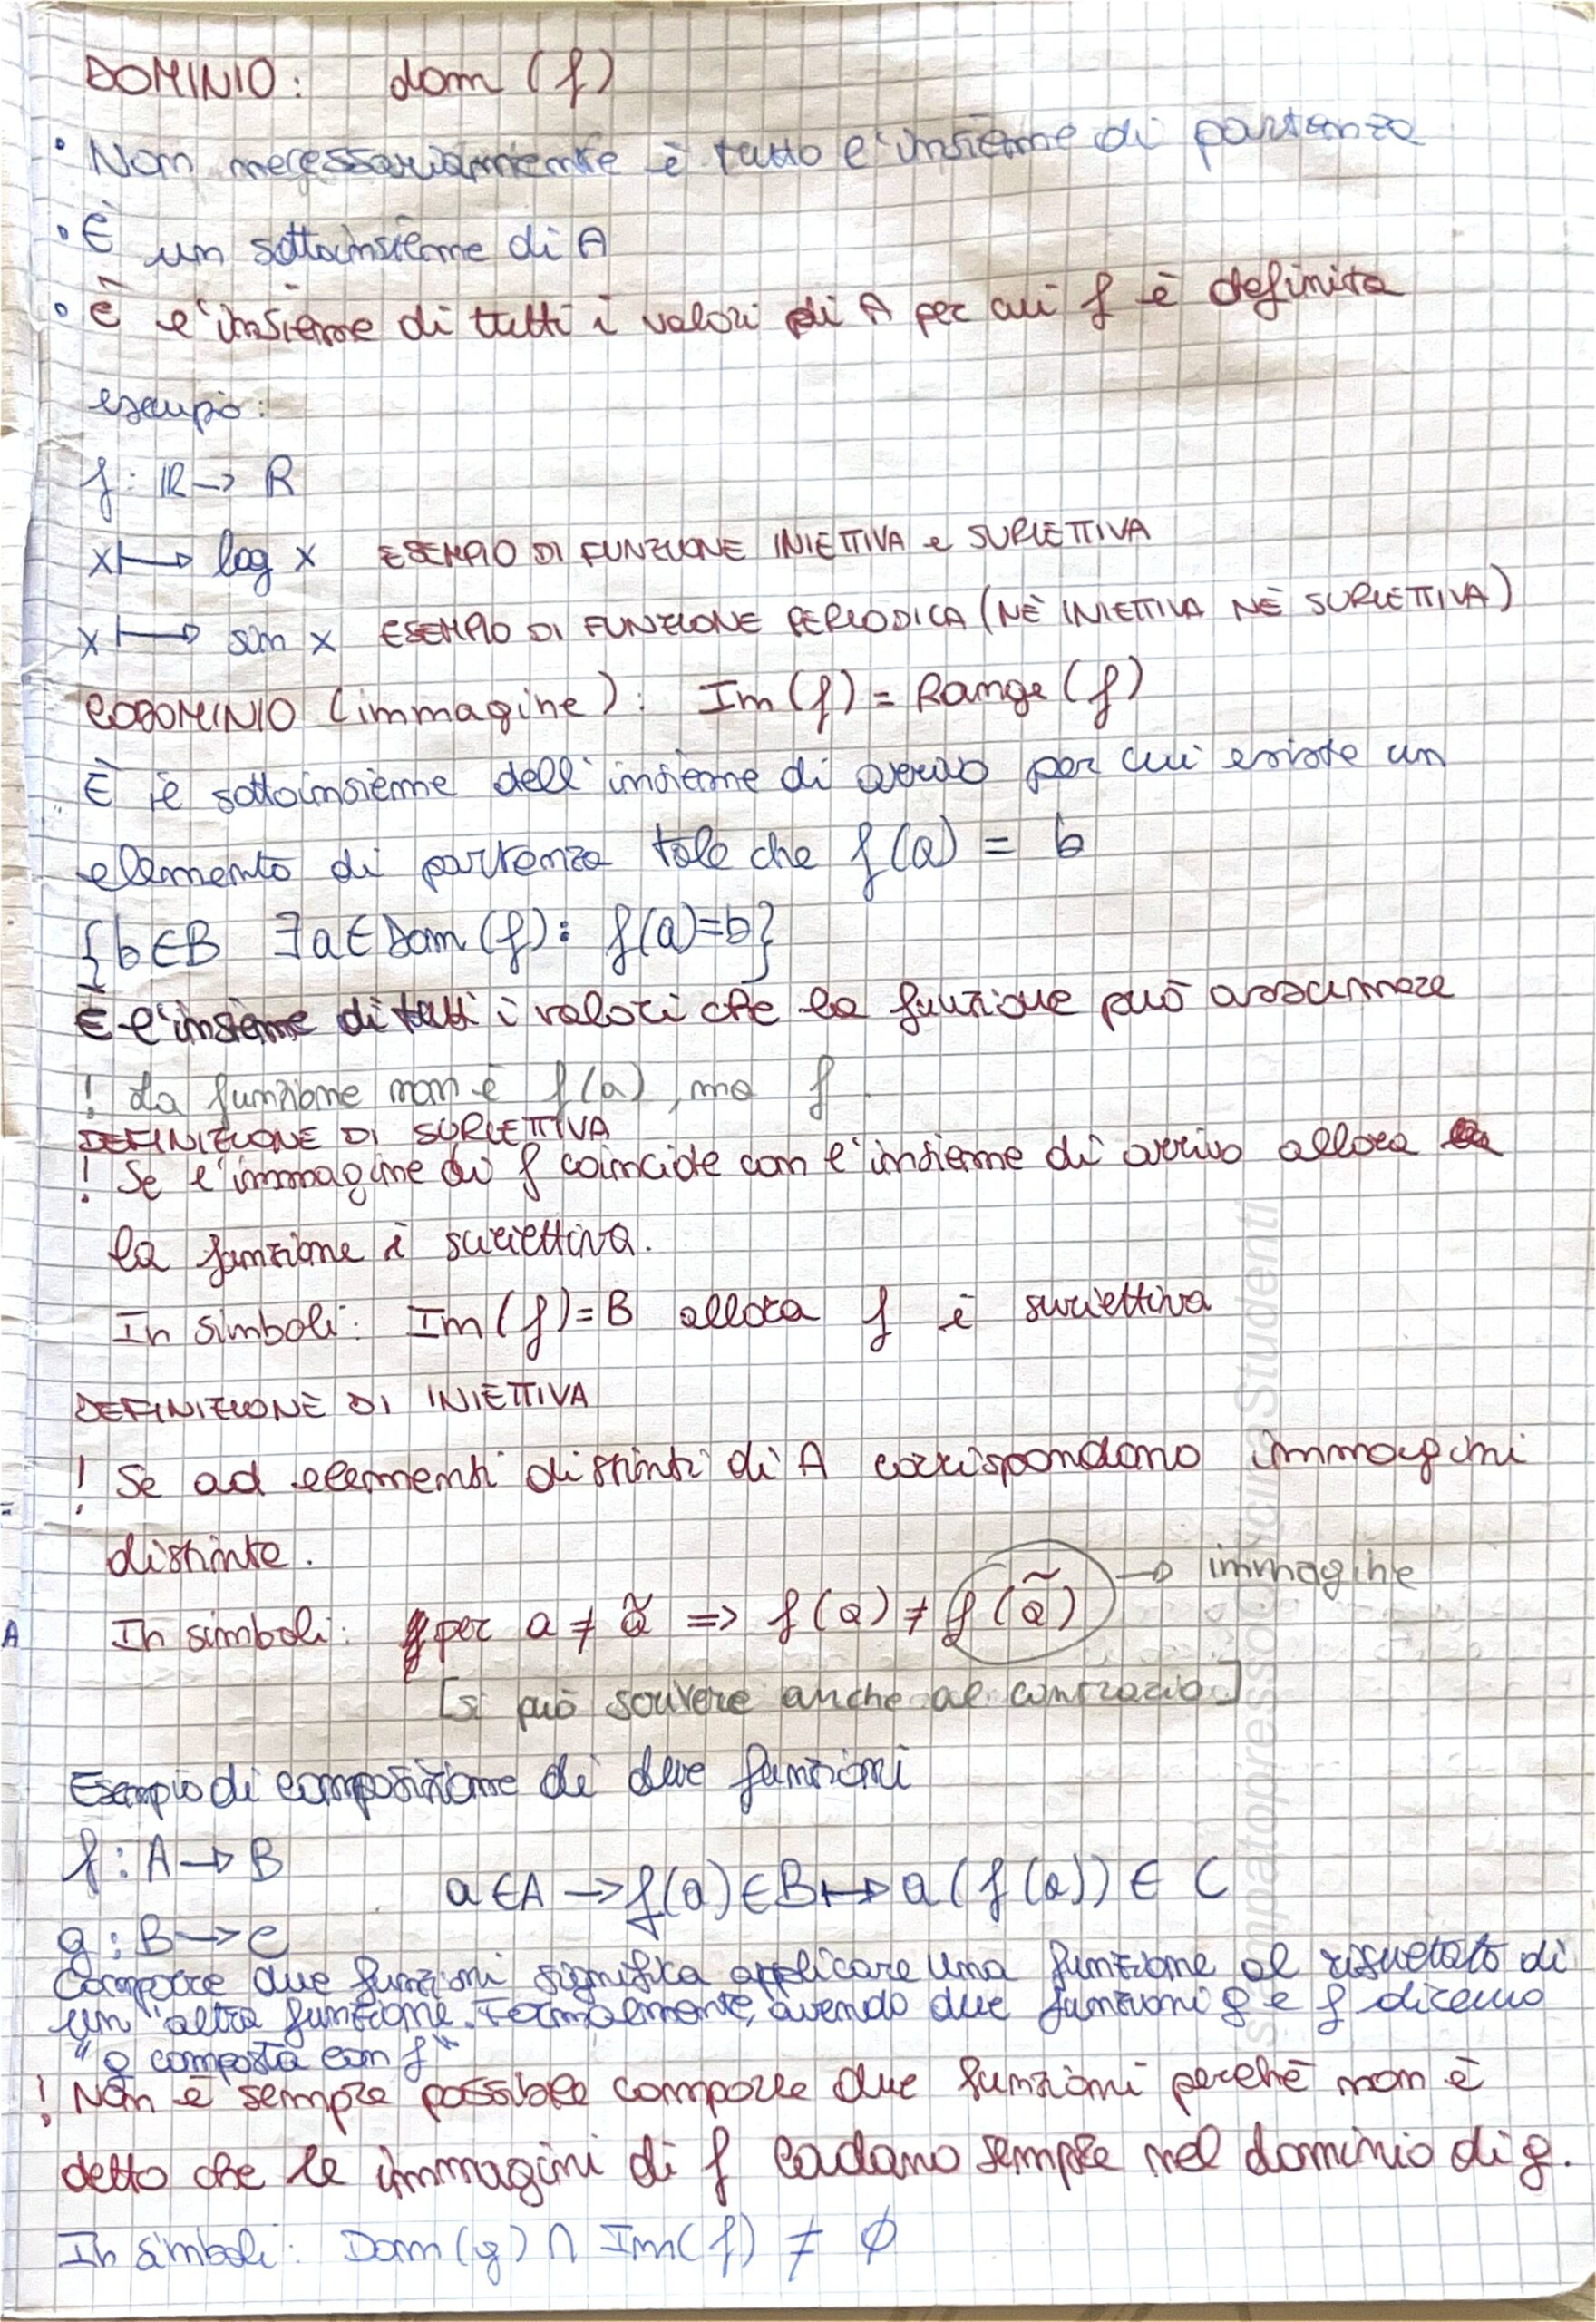 DOMINIO: dom (f)
• Non necessariamente è tutto l'insieme di partenza
• È un sottoinsieme di A
• È l'insieme di tutti i valori di A per cui f è definita
esempio:
f: ℝ → R
x ↦ log x ESEMPIO DI FUNZIONE INIETTIVA e SURIETTIVA
x ↦ sin x ESEMPIO DI FUNZIONE PERIODICA (NÈ INIETTIVA NÈ SURIETTIVA)
CODOMINIO (immagine): Im (f) = Range (f)
È il sottoinsieme dell'insieme di arrivo per cui esiste un
elemento di partenza tale che f(a) = b
{b∈B ∃a∈Dom (f): f(a)=b}
È l'insieme di tutti i valori che la funzione può assumere
! La funzione non è f(a), ma f
DEFINIZIONE DI SURIETTIVA
! Se l'immagine di f coincide con l'insieme di arrivo allora
la funzione è suriettiva.
In simboli: Im(f)=B allora f è suriettiva
DEFINIZIONE DI INIETTIVA
! Se ad elementi distinti di A corrispondono immagini
distinte.
In simboli: per a ≠ ã => f(a) ≠ f(ã) → immagine
A
[si può scrivere anche al contrario]
Esempio di composizione di due funzioni
f: A → B
a∈A → f(a)∈B ↦ a(f(a)) ∈ C
g: B → C
Comporre due funzioni significa applicare una funzione al risultato di
un'altra funzione. Formalmente, avendo due funzioni g e f diciamo
"g composta con f"
! Non è sempre possibile comporre due funzioni perchè non è
detto che le immagini di f cadano sempre nel dominio di g.
In simboli: Dom(g) ∩ Im(f) ≠ ∅